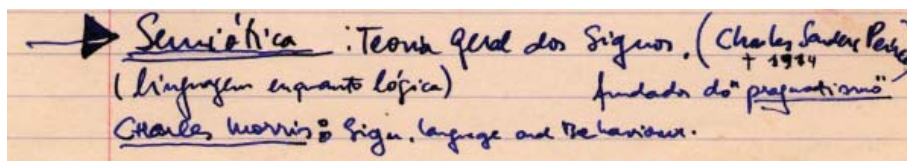 Semiótica : Teoria geral dos Signos. (Charles Sanders Peirce)
† 1914
(linguagem enquanto lógica) fundador do "pragmatismo"
Charles Morris: Sign, language and Behaviour.